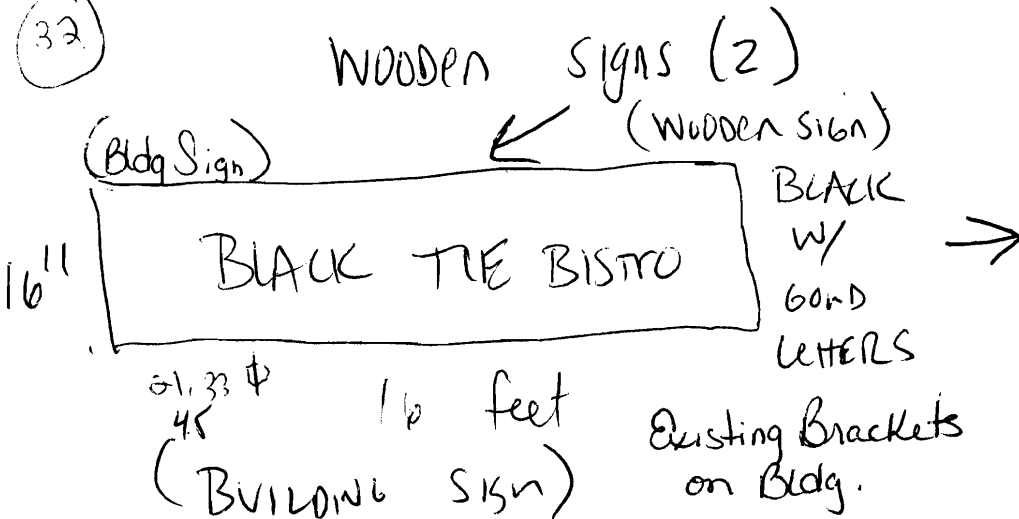 32
Wooden signs (2)
(Wooden sign)
(Bldg Sign)
BLACK TIE BISTRO
16"
BLACK
W/
GOLD
LETTERS
16 feet
(BUILDING SIGN)
Existing Brackets
on Bldg.